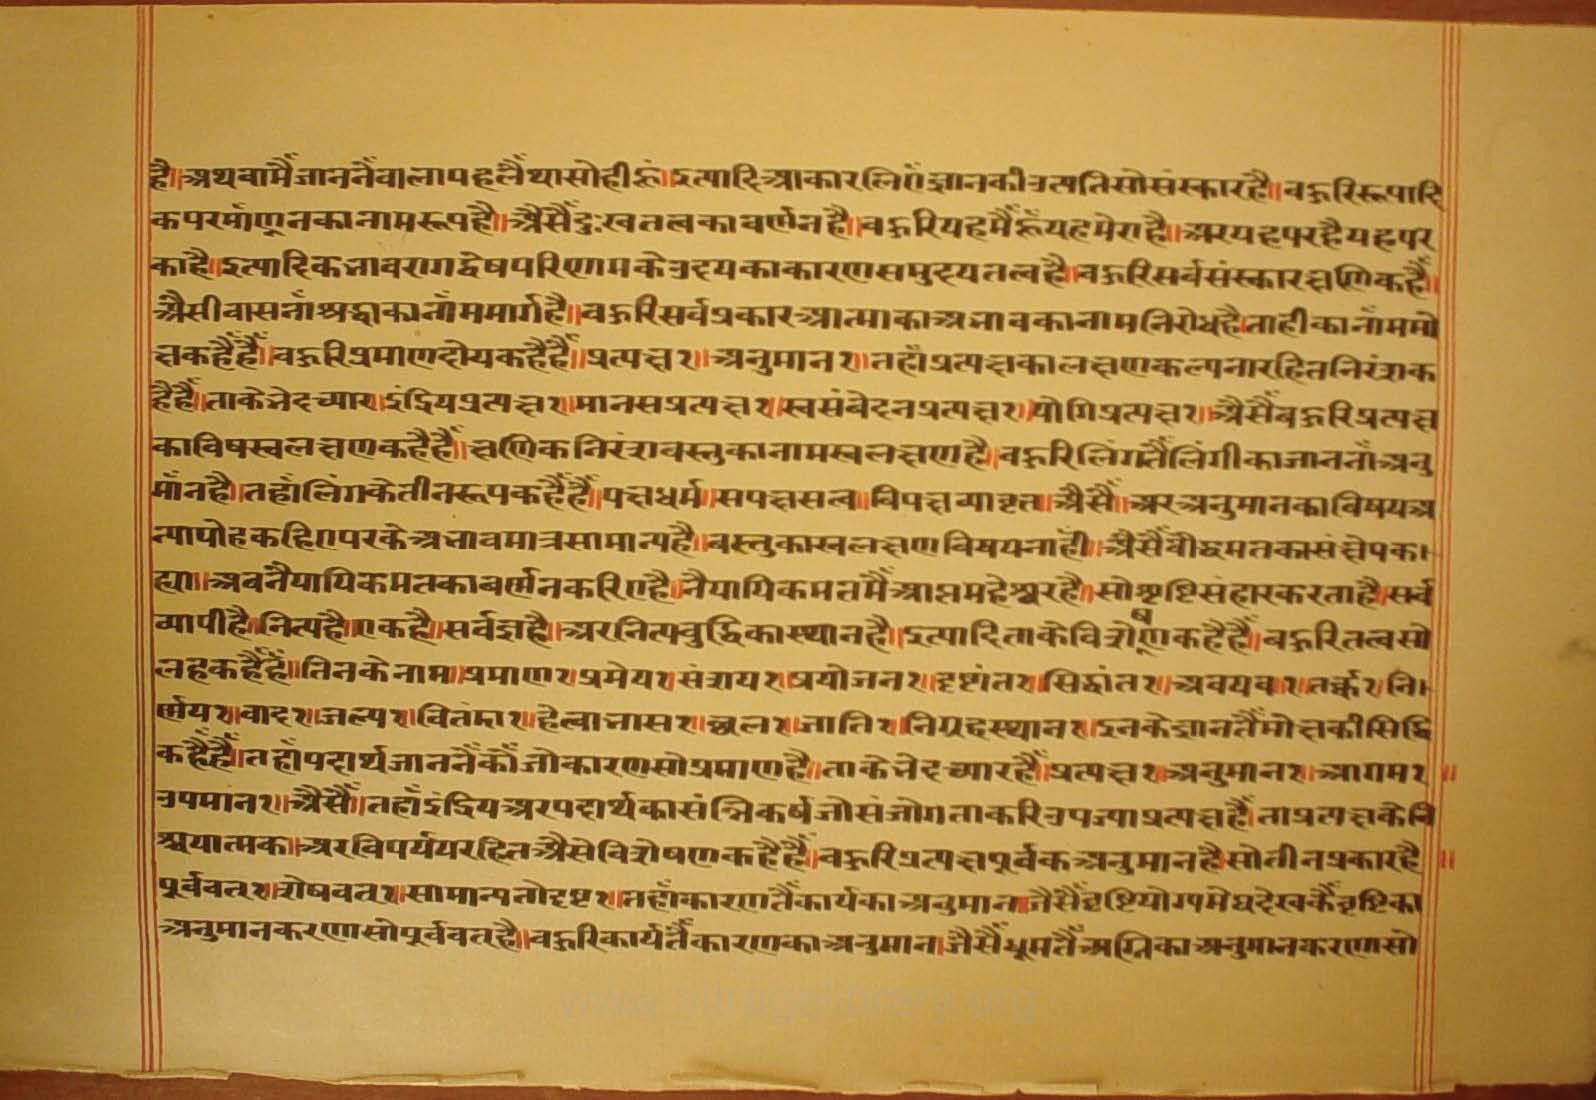 है॥अथवा मैं जाननैंवाला पहलैं था सो ही हूं॥इत्यादि आकार लिएं ज्ञान की उत्पति सो संस्कार है॥बहुरि रूपादि
क परमांणूनका नाम रूप है॥अैसैं दुःखतत्वका वर्णन है॥बहुरि यह मैं हूँ यह मेरा है॥अर यह पर है यह पर
का है॥इत्यादिक भाव रागद्वेष परिणामके उदयका कारण समुदयतत्व है॥बहुरि सर्व संस्कार क्षणिक हैं॥
अैसी वासनाँ श्रद्धाका नाँम मार्ग है॥बहुरि सर्वप्रकार आत्माका अभावका नाम निरोध है।ताहीका नाँम मो
क्ष कहैं हैं॥बहुरि प्रमाण दोय कहैं हैं॥प्रत्यक्ष १॥अनुमान १॥तहाँ प्रत्यक्षका लक्षण कल्पनारहित निरंश क
हैं हैं॥ताके भेद च्यार॥इंद्रियप्रत्यक्ष १॥मानसप्रत्यक्ष १॥स्वसंवेदनप्रत्यक्ष १॥योगिप्रत्यक्ष १॥अैसैं बहुरि प्रत्यक्ष
का विष स्वलक्षण कहैं हैं॥क्षणिक निरंश वस्तुका नाम स्वलक्षण है॥बहुरि लिंगतैं लिंगीका जाननाँ अनु
माँन है॥तहाँ लिंगके तीन रूप कहैं हैं॥पक्षधर्म॥सपक्षसत्व॥विपक्षव्यावृत॥अैसैं॥अर अनुमानका विषय अ
न्यापोह कहिए परके अभावमात्र सामान्य है॥वस्तुका स्वलक्षण विषय नाहीं॥अैसैं बौद्धमतका संक्षेप क।
ह्या॥अब नैयायिकमतका वर्णन करिए है॥नैयायिकमतमैं आप्त महेश्वर है॥सो श्रृष्टि संहार करता है॥सर्व
व्यापी है॥नित्य है॥एक है॥सर्वज्ञ है॥अर नित्यबुद्धिका स्थान है॥इत्यादि ताके विशेषण कहैं हैं॥बहुरि तत्व सो
लह कहैं हैं॥तिनके नाम॥प्रमाण १॥प्रमेय १॥संशय १॥प्रयोजन १॥दृष्टांत १॥सिद्धांत १॥अवयव १॥तर्क्क १॥नि।
र्णय १॥वाद १॥जल्प १॥वितंडा १॥हेत्वाभास १॥छल १॥जाति १॥निग्रहस्थान १॥इनके ज्ञानतैं मोक्षकी सिद्धि
कहैं हैं॥तहाँ पदार्थ जाननैंकौं जो कारण सो प्रमाण है॥ताके भेद च्यार हैं॥प्रत्यक्ष १॥अनुमान १॥आगम १॥
उपमान १॥अैसैं॥तहाँ इंद्रिय अर पदार्थका संन्निकर्ष जो संजोग ताकरि उपज्या प्रत्यक्ष है॥ता प्रत्यक्षके नि
श्चयात्मक॥अर विपर्ययरहित अैसे विशेषण कहैं हैं॥बहुरि प्रत्यक्षपूर्वक अनुमान है सो तीन प्रकार है॥
पूर्ववत् १॥शेषवत् १॥सामान्यतोदृष्ट १॥तहाँ कारणतैं कार्यका अनुमान॥जैसैं वृष्टियोग्य मेघ देखकैं वृष्टिका
अनुमान करणा सो पूर्ववत् है॥बहुरि कार्यतैं कारणका अनुमान॥जैसैं धूमतैं अग्निका अनुमान करणा सो
www.vitragelibrary.org